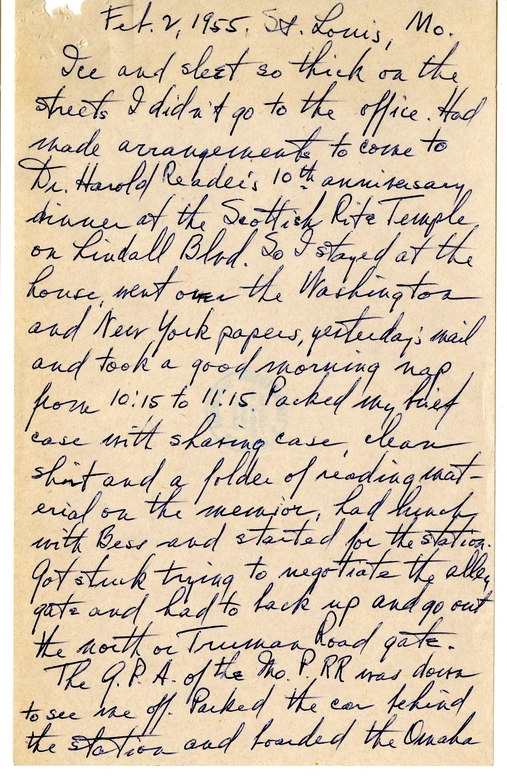 Feb. 2, 1955. St. Louis, Mo.
Ice and sleet so thick on the
streets I didn't go to the office. Had
made arrangements to come to
Dr. Harold Reader's 10th anniversary
dinner at the Scottish Rite Temple
on Lindall Blvd. So I stayed at the
house, went over the Washington
and New York papers, yesterday's mail
and took a good morning nap
from 10:15 to 11:15. Packed my brief
case with shaving case, clean
shirt and a folder of reading mat-
erial on the memior, had lunch
with Bess and started for the station.
Got stuck trying to negotiate the alley
gate and had to back up and go out
the north or Truman Road gate.
The G.P.A. of the Mo. P. RR was down
to see me off. Parked the car behind
the station and boarded the Omaha